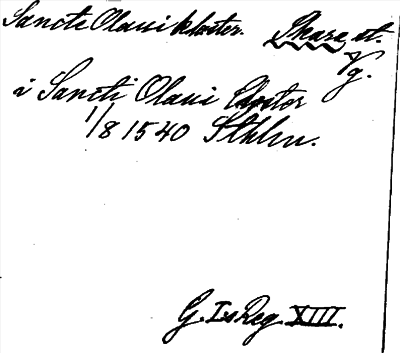 Sancte Olaui kloster. Skara st.
Vg.
i Sancti Olaui Closter
1/8 1540 Sthlm.
G. I:s Reg. XIII.